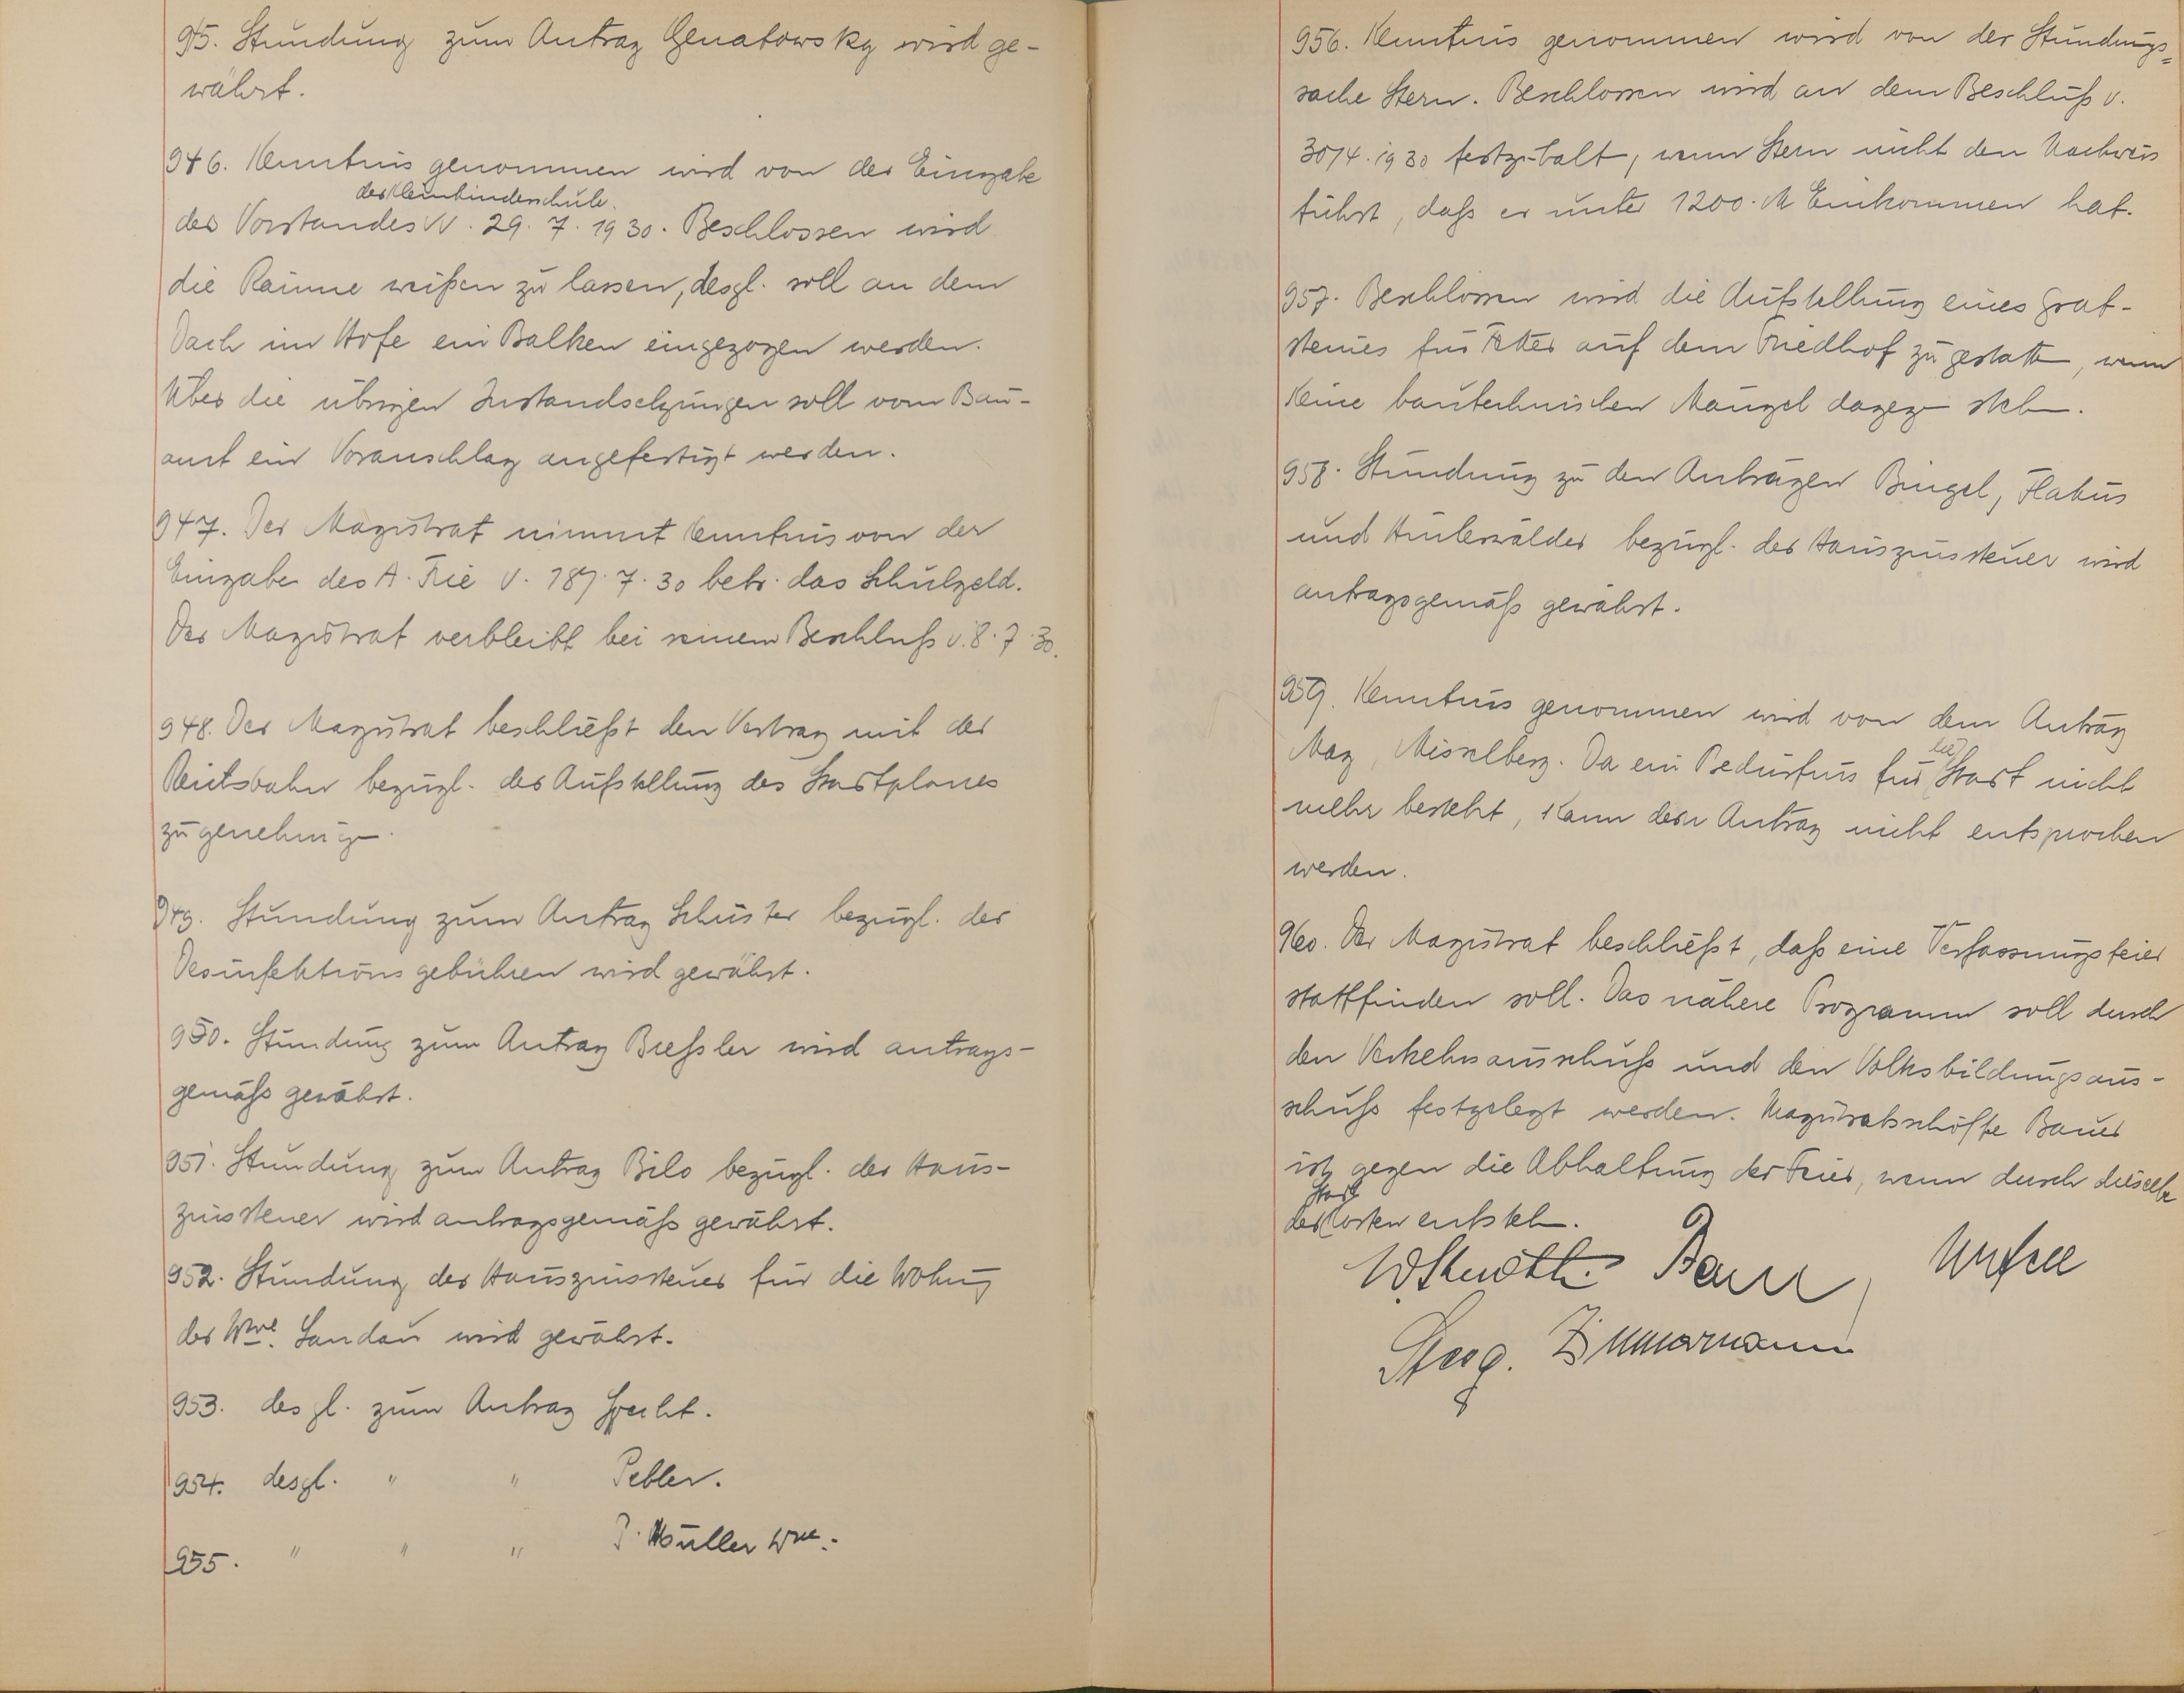 945. Stundung zum Antrag Genatowsky wird ge-
währt.
946. Kenntnis genommen wird von der Eingabe
der Kleinkinderschule.
des Vorstandes v. 29. 7. 1930. Beschlossen wird
die Räume weißen zu lassen, desgl. soll an dem
Dach im Hofe ein Balken eingezogen werden.
Über die übrigen Instandsetzungen soll vom Bau-
amt ein Voranschlag angefertigt werden.
947. Der Magistrat nimmt Kenntnis von der
Eingabe des A. Frie v. 7. 30 betr. das Schulgeld.
Der Magistrat verbleibt bei seinem Beschluß v. 8. 7. 30.
948. Der Magistrat beschließt den Vertrag mit der
Reichsbahn bezügl. der Aufstellung des Stadtplanes
zu genehmigen.
949. Stundung zum Antrag Schuster bezügl. der
Desinfektionsgebühren wird gewährt.
950. Stundung zum Antrag Bießler wird antrags-
gemäß gewährt.
951. Stundung zum Antrag Bilo bezügl. der Haus-
zinssteuer wird antragsgemäß gewährt.
952. Stundung der Hauszinssteuer für die Wohnung
der Wwe. Landau wird gewährt.
953. desgl. zum Antrag Specht.
954. desgl. " " Pebler.
955. " " " P. Müller Wwe.
956. Kenntnis genommen wird von der Stundungs=
sache Stern. Beschlossen wird an dem Beschluß v.
30/4. 1930 festzuhalten, wenn Stern nicht den Nachweis
führt, daß er unter 1200.M Einkommen hat.
957. Beschlossen wird die Aufstellung eines Grab-
steines für Fetter auf dem Friedhof zu gestatten, wenn
keine bautechnischen Mängel dagegen stehen.
958. Stundung zu den Anträgen Bingel, Flakus
und Hinterwälder bezügl. der Hauszinssteuer wird
antragsgemäß gewährt.
959. Kenntnis genommen wird von dem Antrag
May, Misselberg. Da ein Bedürfnis für die Stadt nicht
mehr besteht, kann dem Antrag nicht entsprochen
werden.
960. Der Magistrat beschließt, daß eine Verfassungsfeier
stattfinden soll. Das nähere Programm soll durch
den Verkehrsausschuß und den Volksbildungsaus-
schuß festgelegt werden. Magistratsschöffe Bauer
ist gegen die Abhaltung der Feier, wenn durch dieselbe
der Stadt Kosten entstehen.
Zimmermann